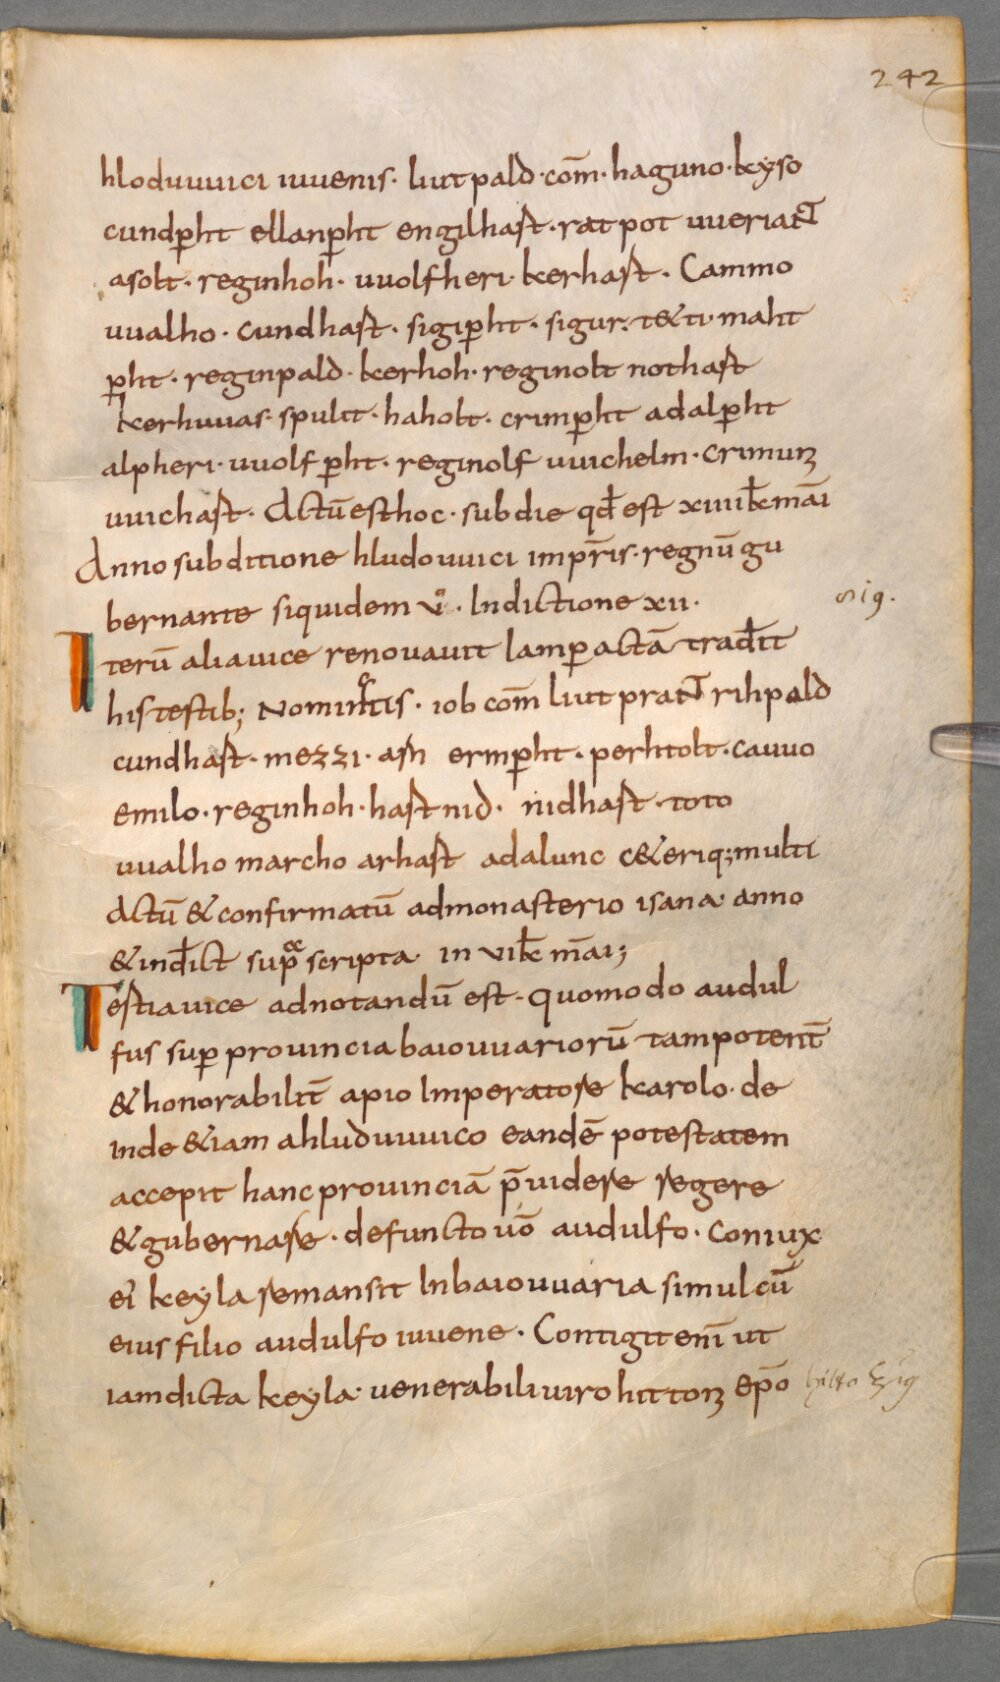 242
hloduuuici iuuenis · liutpald · com̄ · haguno · keyso
cundp̱ht ellanp̱ht engilhast · ratpot uueriant
asolt · reginhoh · uuolfheri · kerhast · Cammo
uualho · cundhast · sigip̱ht · sigur · t&ti · maht
p̱ht · reginpald · kerhoh · reginolt nothast
kerhuuas · spulit · haholt · crimp̱ht adalp̱ht
alpheri · uuolfp̱ht · reginolf uuichelm · crimuꝫ
uuichast · Actū est hoc · sub die qđ est xiiii kł māi
Anno sub ditione hludouuici imp̄ris · regnū gu
bernante siquidem v° · Indictione xii ·
sig.
Iterū alia uice renouauit lamp̱ actā tradiť
his testib; Nominatis · iob com̄ liutprant rihpald
cundhast · mezzi · asḥ ermp̱ht · perhtolt · cauuo
emilo · reginhoh · hast nid · nidhast · toto
uualho marcho arhast adalunc c&eriq; multi
Actū & confirmatū ad monasterio isana · anno
& indict sup̱ scripta · in vi kł māi;
Testia uice adnotandū est · quomodo audul
fus sup̱ prouincia baiouuariorū tam potent̄
& honorabilit̄ a pio Imperatore karolo · de
inde &iam a hluduuuico eandē potestatem
accepit hanc prouinciā p̄uidere regere
& gubernare · defuncto uō audulfo · coniux
ei keyla remansit In baiouuaria simul cū
eius filio audulfo iuuene · Contigit enī ut
iamdicta keyla · uenerabili uiro hittoꝫ ep̄o
hitto